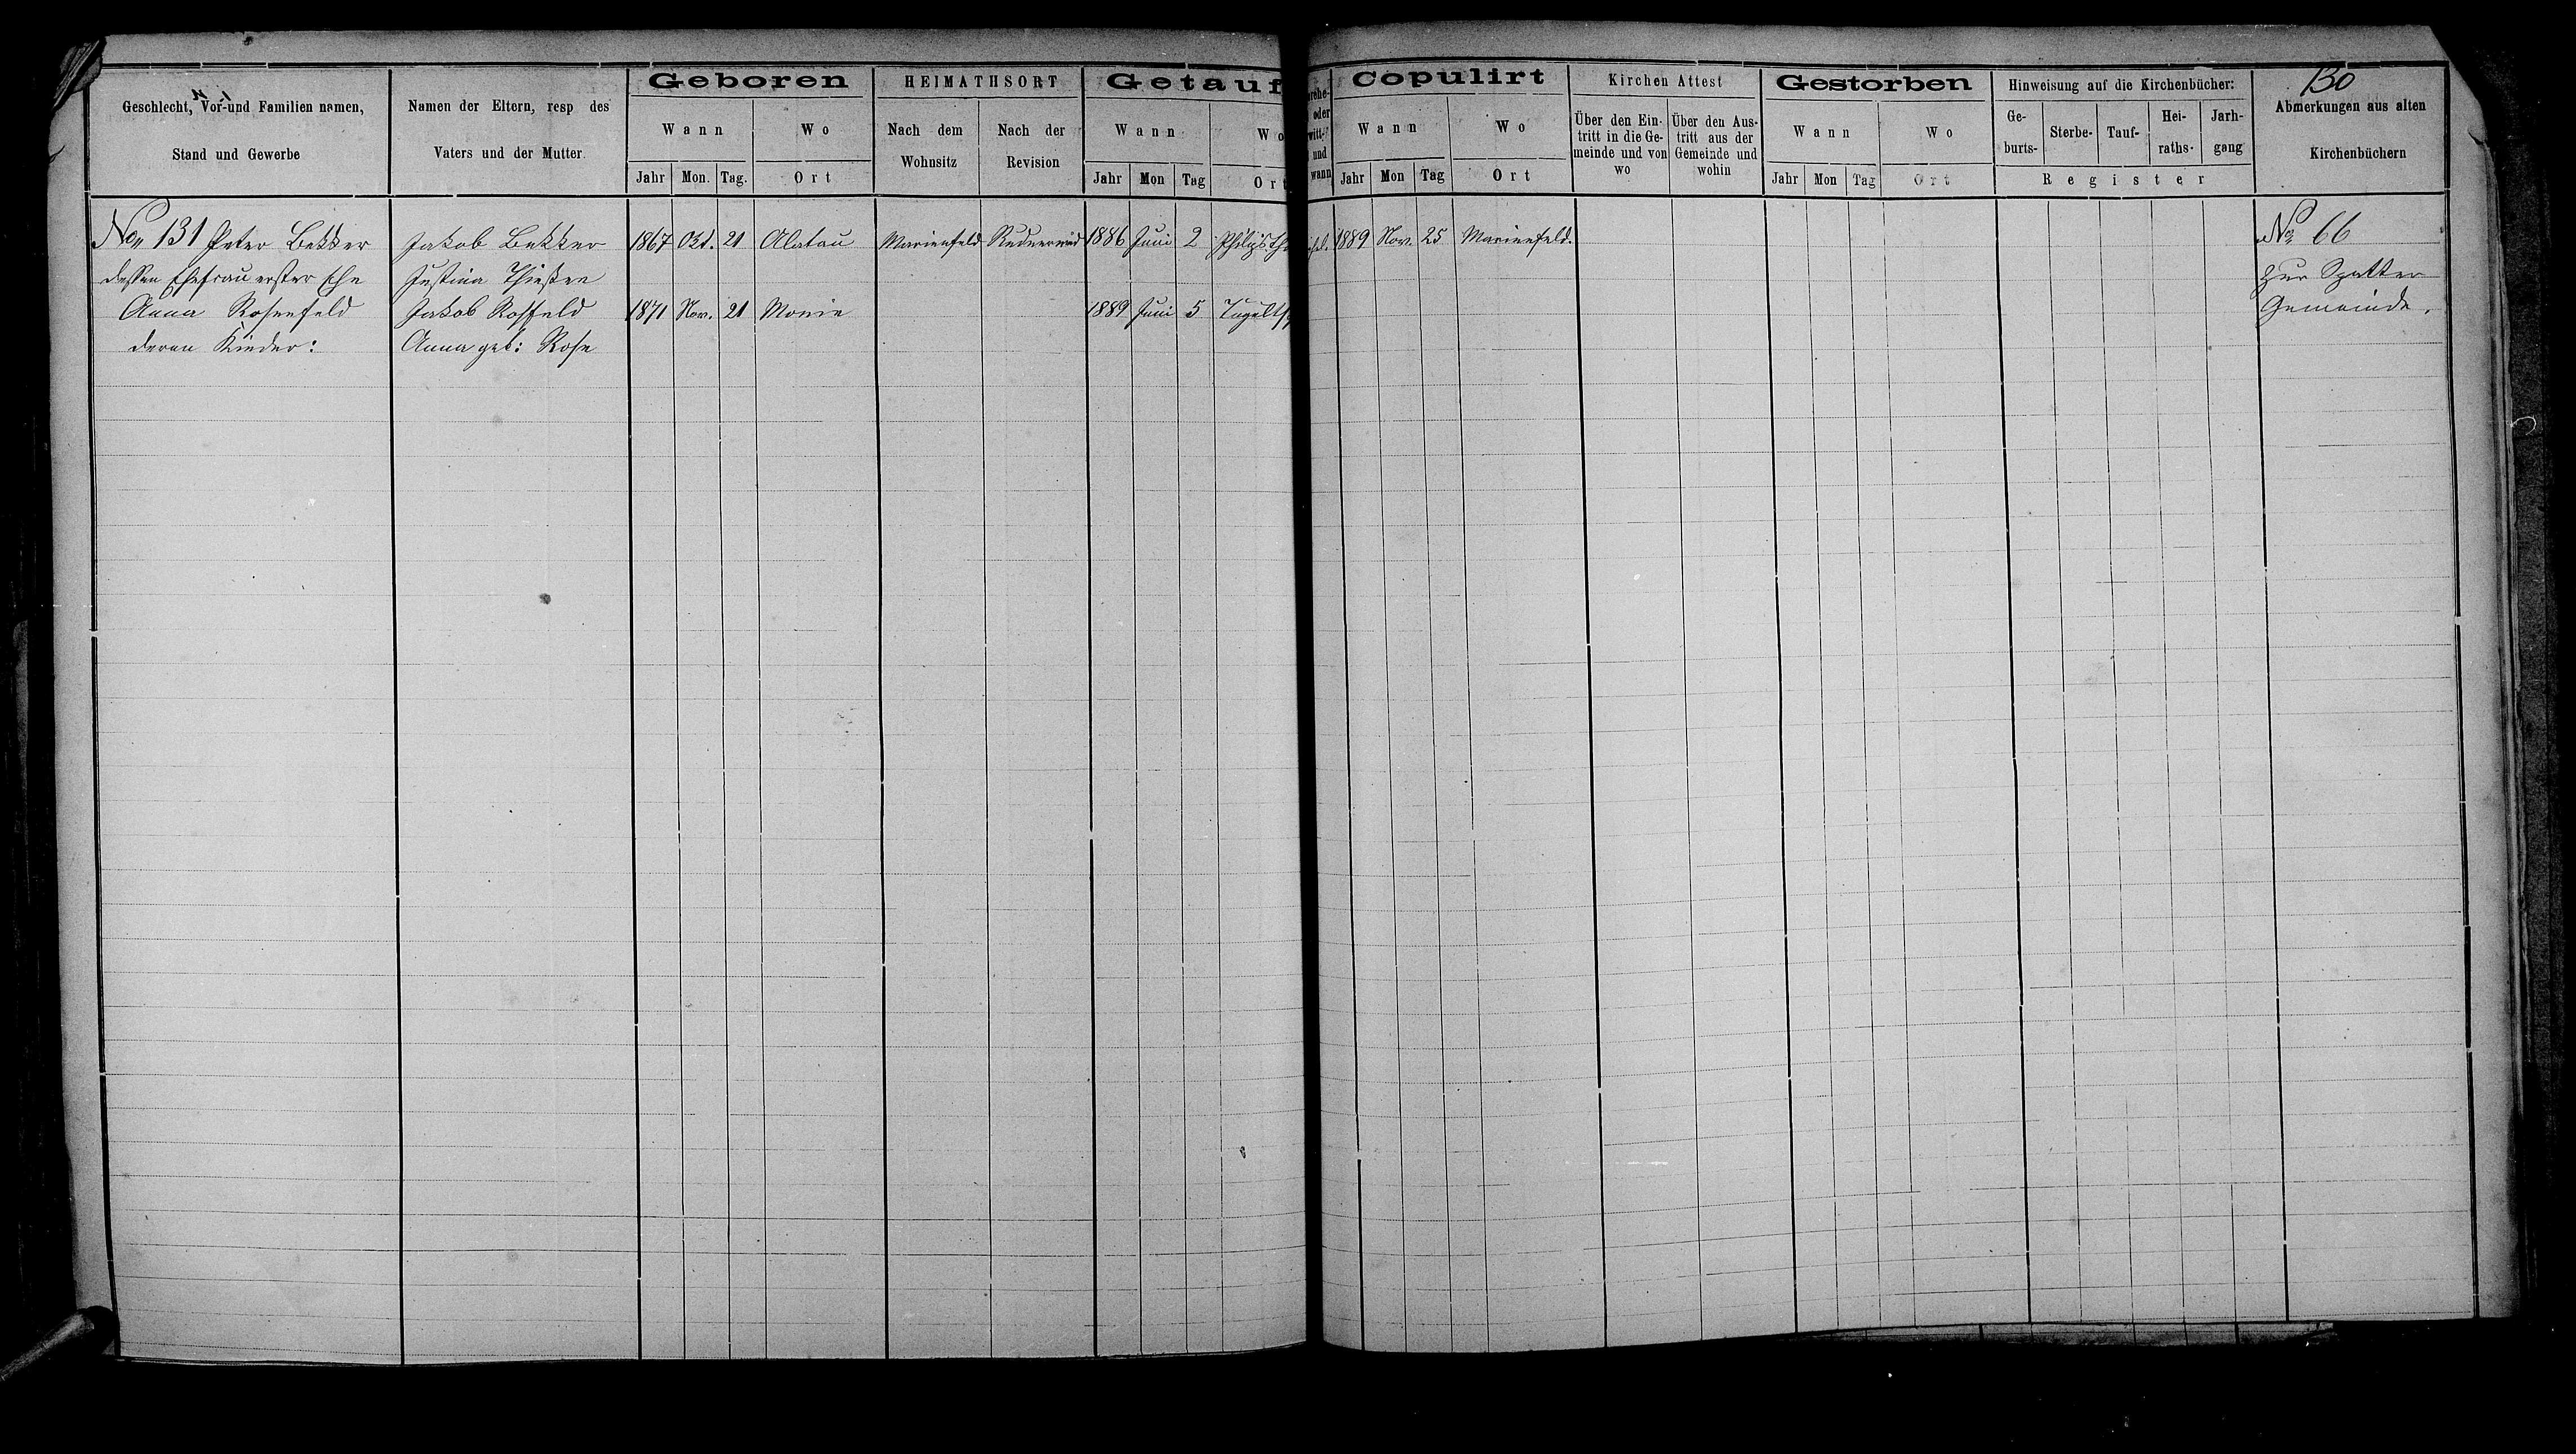 130
Geschlecht, Vor-und Familien namen,
Stand und Gewerbe
Namen der Eltern, resp des
Vaters und der Mutter.
Geboren
Wann
Wo
Jahr Mon. Tag. Ort
HEIMATHSORT
Nach dem Wohnsitz
Nach der Revision
Getauf
Wann
Wo
Jahr Mon Tag Ort
oder
und
wann
Copulirt
Wann
Wo
Jahr Mon Tag Ort
Kirchen Attest
Über den Ein-
tritt in die Ge-
meinde und von
wo
Über den Aus-
tritt aus der
Gemeinde und
wohin
Gestorben
Wann
Wo
Jahr Mon Tag Ort
Hinweisung auf die Kirchenbücher:
Ge-
burts-
Sterbe-
Tauf-
Hei-
raths-
Jarh-
gang
Register
Abmerkungen aus alten
Kirchenbüchern
No 131 Peter Bekker Jakob Bekker 1867 Okt. 21 Alatau Marienfeld 1886 Juni 2 1889 Nov. 25 Marienfeld. No 66
dessen Ehefrau erster Ehe Justina Thießen zur
Anna Rosenfeld Jakob Rosfeld 1871 Nov. 21 Monin 1889 Juni 5 Gemeinde.
deren Kinder: Anna geb: Rose